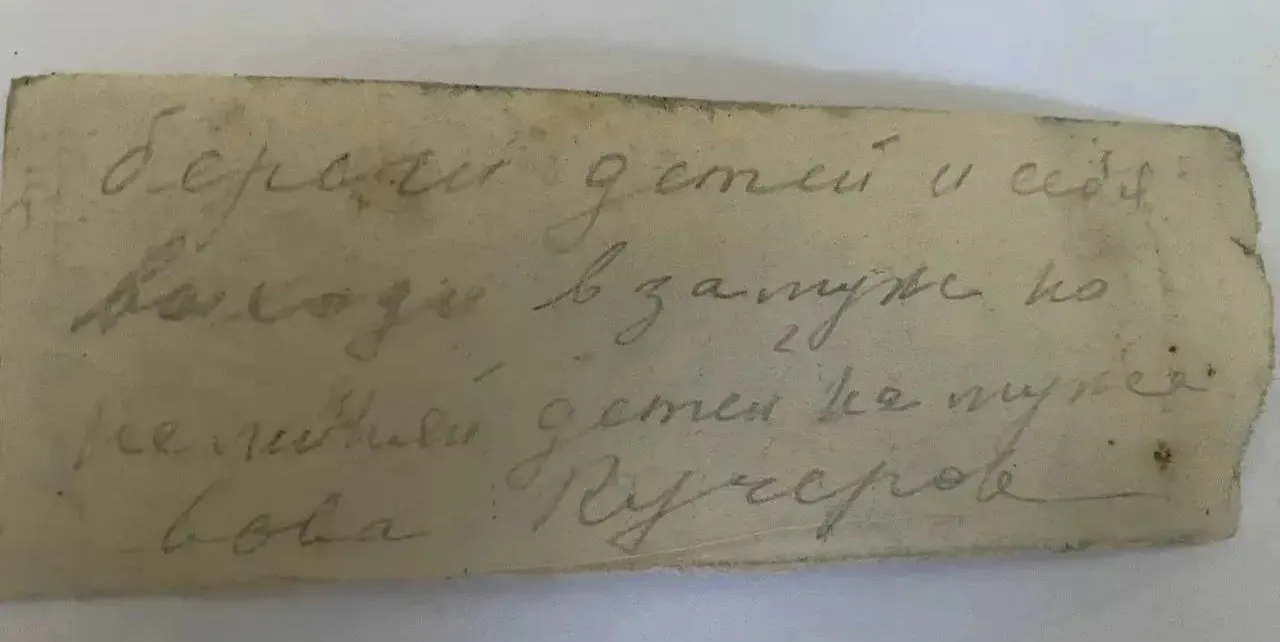 береги детей и себя
Выходи взамуж но
не меняй детей на мужа
вова Кучеров